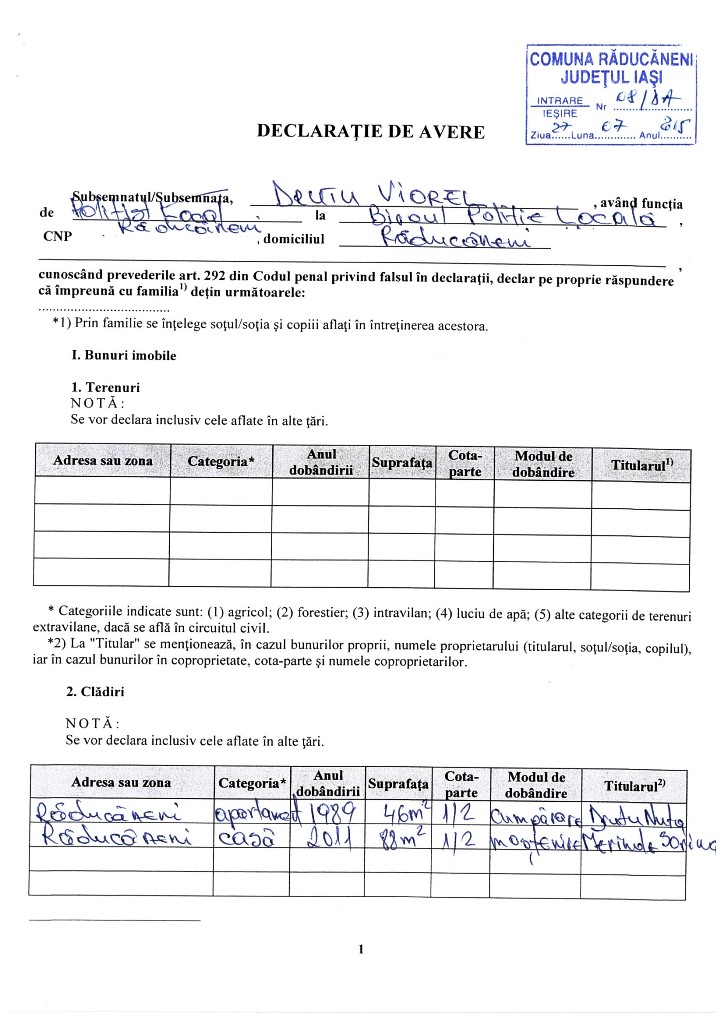 COMUNA RĂDUCĂNENI
JUDEŢUL IAŞI
INTRARE
IEŞIRE
Nr 08/DA
Ziua 27 Luna 07 Anul 2015
DECLARAŢIE DE AVERE
Subsemnatul/Subsemnata, Viorel, având funcţia
de Poliţist Local la Biroul Poliţie Locală,
Răducăneni
CNP , domiciliul Răducăneni
,
cunoscând prevederile art. 292 din Codul penal privind falsul în declaraţii, declar pe proprie răspundere
că împreună cu familia1) deţin următoarele:
*1) Prin familie se înţelege soţul/soţia şi copiii aflaţi în întreţinerea acestora.
I. Bunuri imobile
1. Terenuri
NOTĂ:
Se vor declara inclusiv cele aflate în alte ţări.
Adresa sau zona Categoria* Anul dobândirii Suprafaţa Cota-parte Modul de dobândire Titularul1)
* Categoriile indicate sunt: (1) agricol; (2) forestier; (3) intravilan; (4) luciu de apă; (5) alte categorii de terenuri
extravilane, dacă se află în circuitul civil.
*2) La "Titular" se menţionează, în cazul bunurilor proprii, numele proprietarului (titularul, soţul/soţia, copilul),
iar în cazul bunurilor în coproprietate, cota-parte şi numele coproprietarilor.
2. Clădiri
NOTĂ:
Se vor declara inclusiv cele aflate în alte ţări.
Adresa sau zona Categoria* Anul dobândirii Suprafaţa Cota-parte Modul de dobândire Titularul2)
Răducăneni apartament 1989 46m² 1/2 Cumpărare Nuţa
Răducăneni casă 2011 88m² 1/2 moştenire Merinde Sorina
1